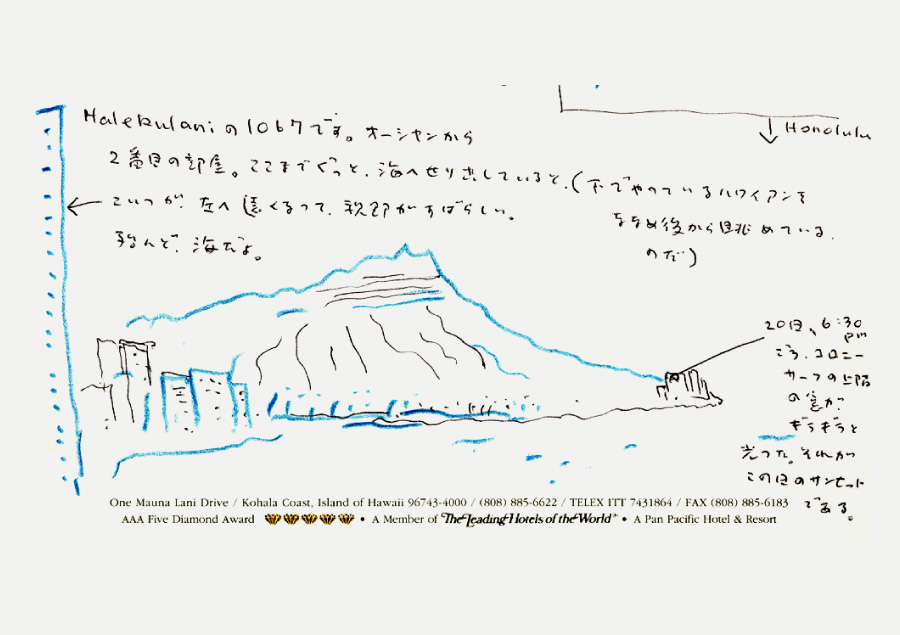 Honolulu
Halekulaniの1067です。オーシャンから
2番目の部屋。ここまでぐっと、海へせり出していると、(下でやっているハワイアンを
ななめ後から眺めている。
のだ)
こいつが、左へ遠くなって、視界がすばらしい。
殆んど、海だよ。
20日、6:30
pm
ころ、コロニー
サーフの上階
の窓が
ギラギラと
光った。それが
この日のサンセット
である。
One Mauna Lani Drive / Kohala Coast, Island of Hawaii 96743-4000 / (808) 885-6622 / TELEX ITT 7431864 / FAX (808) 885-6183
AAA Five Diamond Award • A Member of The Leading Hotels of the World • A Pan Pacific Hotel & Resort